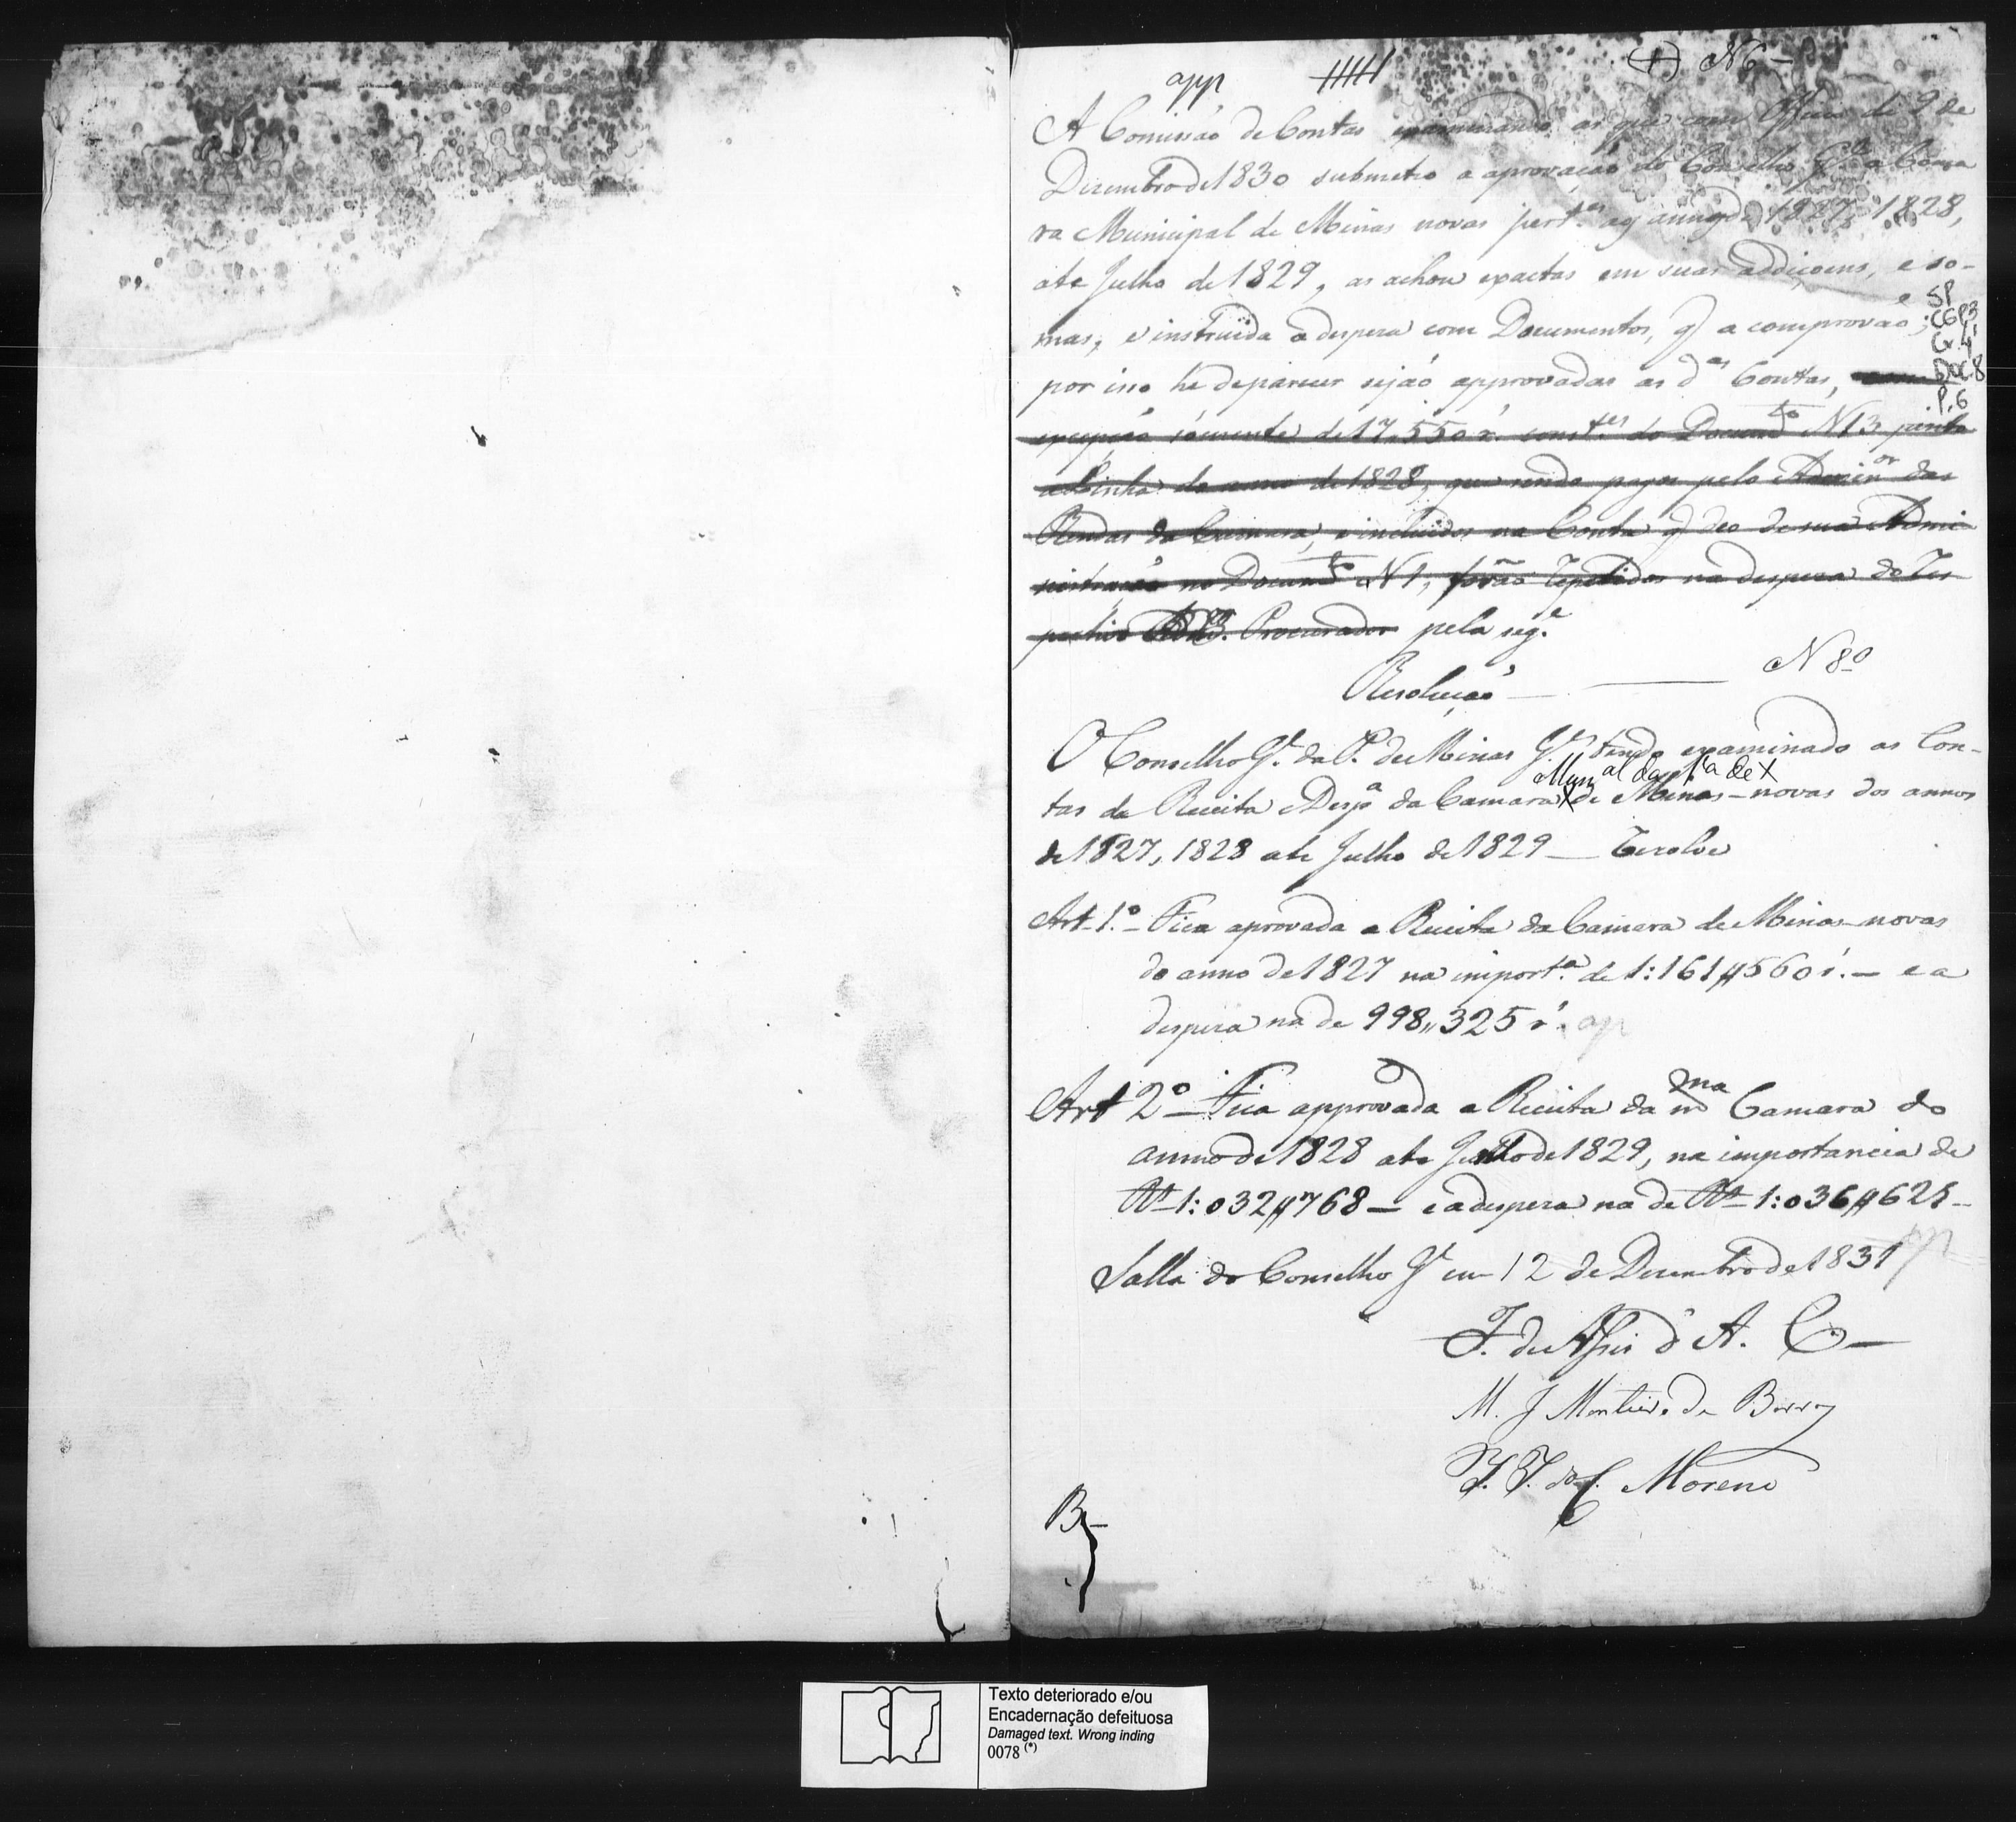 app
N 6 -
A Comissão de Contas examinando as que com Officio de 9 de
Dezembro de 1830 submeteo a aprovação do Conselho G.al a Cama
ra Municipal de Minas novas pert.es aos annos de 1827, 1828,
ate Julho de 1829, as achou exactas em suas addiçoens, e so-
mas, e instruida a despeza com Documentos, q a comprovaõ; e
SP
CGP3
Cx. 4
DOC. 8
P. 6
por isso he de parecer sejaõ approvadas as d.as Contas, com
excepçaõ sómente de 17.550 r. const.es do Docum.to N 13 junto
do anno de 1828, que sendo pagos pelo Admin.or das
Rendas da Camara, e incluidos na Conta q deo de sua Admi-
nistraçaõ no Docum.to N 1, foraõ repetidos na despeza do res-
pectivo Procurador pela seg.e
Resoluçaõ — N 8.o
O Conselho G.l da P. de Minas G.s tendo examinado as Con-
Mun.al da V.a de X
tas da Receita e Desp.a da Camara X de Minas-novas dos annos
de 1827, 1828 ate Julho de 1829 — Resolve
Art. 1.o — Fica aprovada a Receita da Camara de Minas novas
do anno de 1827 na import.a de 1:161#560 r. — e a
despeza na de 998,,325 r. ap
Art 2.o — Fica approvada a Receita da m.ma Camara do
anno de 1828 ate Julho de 1829, na importancia de
R.s 1:032#768 — e a despeza na de R.s 1:036#625 —
app
Salla do Conselho G.l em 12 de Dezembro de 1831
F. de Assis d' A. C—
M. J Monteiro de Barros
J. J. da C. Moreno
B—
Texto deteriorado e/ou
Encadernação defeituosa
Damaged text. Wrong inding
0078 (*)